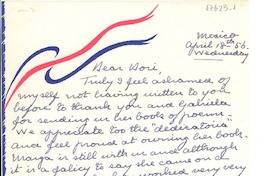 Mexico
April 18th 56.
Wednesday
Dear Dori,
Truly I feel ashamed of
myself not having written to you
before to thank you and Gabriela
for sending us her books of poems.
We appreciate too the "dedicatoria"
and feel proud at owning her book.
Marga is still with us and although
it is a policy to say she came on
worked very very